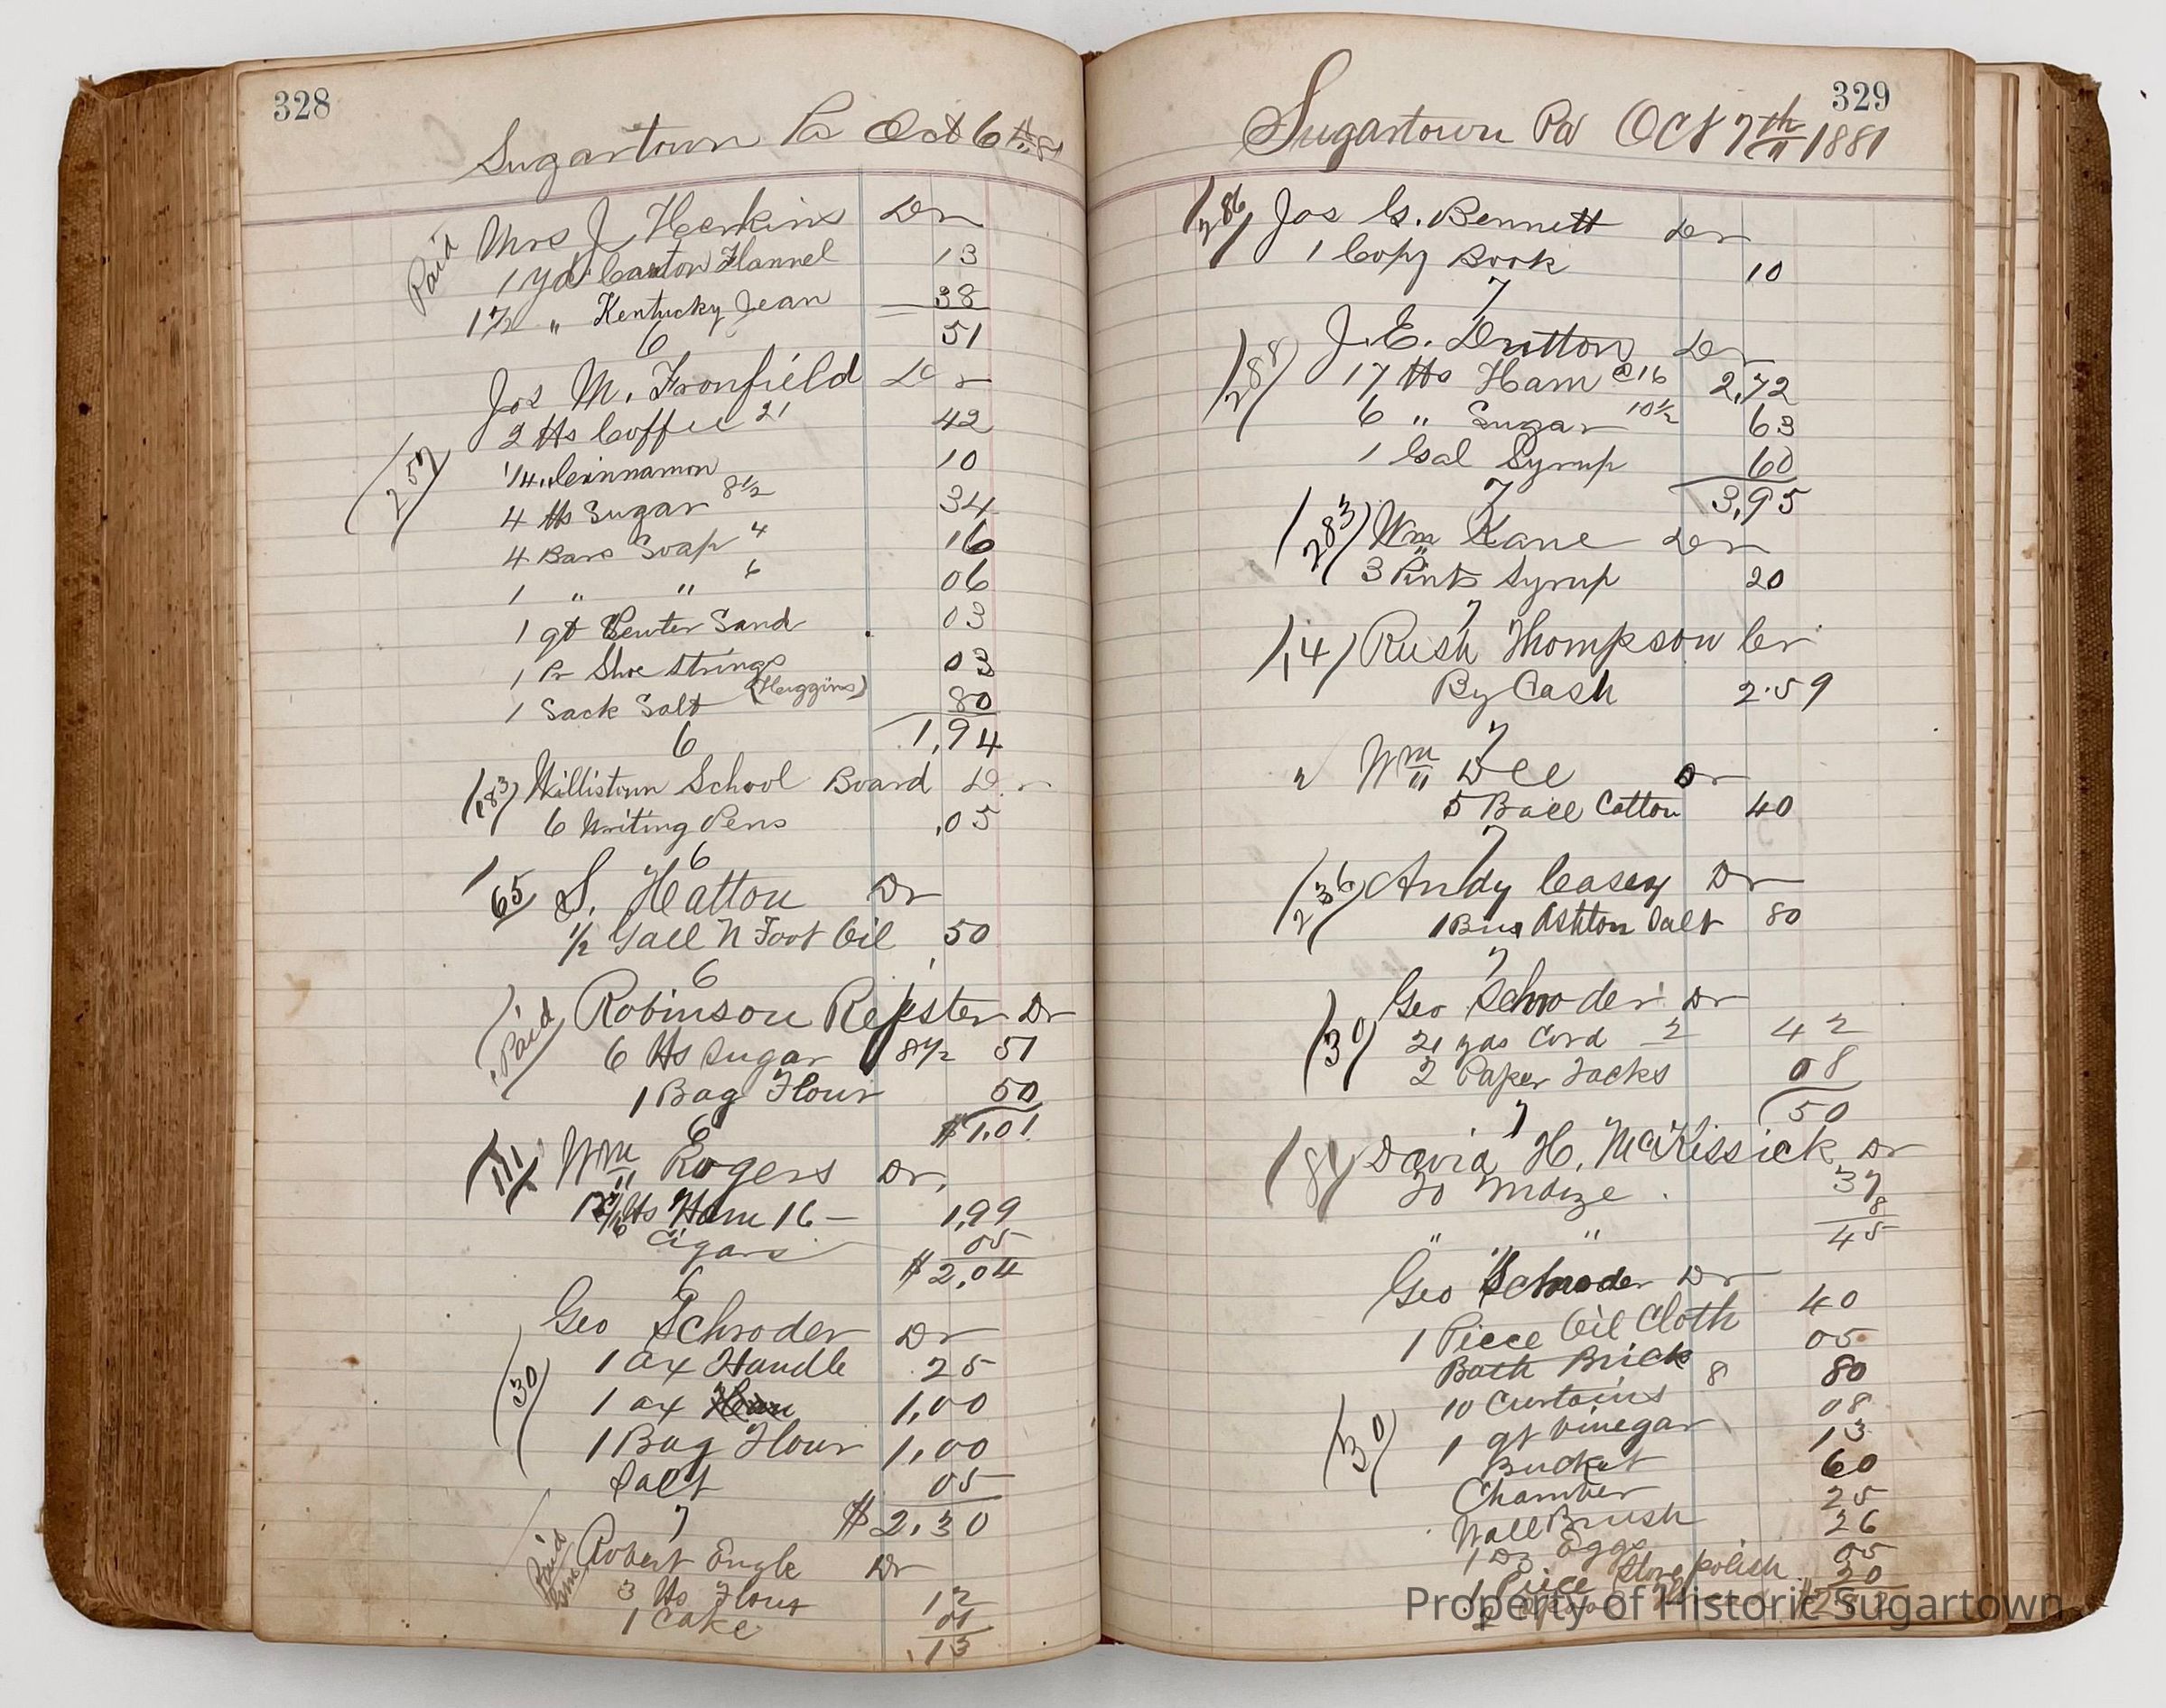 328
Sugartown Pa Oct 6th 81
Paid
Mrs J Herkins Dr
1 yd Canton Flannel 13
1 1/2 " Kentucky Jean 38
51
6
Jos M. Fronfield Dr
(257)
2 lbs Coffee 21 42
1/4 " Cinnamon 10
4 lbs Sugar 8 1/2 34
4 Bars Soap 4 16
1 " " 6 06
1 qt Pewter Sand 03
1 Pr Shoe Strings 03
1 Sack Salt (Higgins) 80
1,94
6
(183) Willistown School Board Dr
6 Writing Pens ,05
6
65 S. Hatton Dr
1/2 Gall N Foot Oil 50
6
(Paid) Robinson Repster Dr
6 lbs Sugar 8 1/2 51
1 Bag Flour 50
$1.01
6
(111) Wm Rogers Dr.
lbs Ham 16 — 1,99
Cigars 05
$2,04
6
Geo Schroder Dr
(30)
1 ax Handle 25
1 ax 1,00
1 Bag Flour 1,00
Salt 05
$2.30
7
Paid
Robert Engle Dr
3 lbs Flour 12
1 Cake 01
,13
329
Sugartown Pa Oct 7th 1881
(286) Jos G. Bennett Dr
1 Copy Book 10
7
(288) J. E. Dutton Dr
17 lbs Ham @16 2,72
6 " Sugar 10 1/2 63
1 Gal Syrup 60
3,95
7
(283) Wm Kane Dr
3 Pints Syrup 20
7
(14) Rush Thompson Cr
By Cash 2.59
7
" Wm Dell Dr
5 Ball Cotton 40
7
(236) Andy Casey Dr
1 Bus Ashton Salt 80
7
Geo Schroder Dr
(30)
21 yds Cord 2 42
2 Paper Tacks 08
50
7
(81) David H. McKissick Dr
To Maize . 37
8
45
" " "
Geo Schroder Dr
(30)
1 Piece Oil Cloth 40
Bath Brick 05
10 Curtains 8 80
1 qt Vinegar 08
Bucket 13
Chamber 60
Wall Brush 25
1 Dz Eggs 26
1 Piece Stove polish 05
20
Property of Historic Sugartown